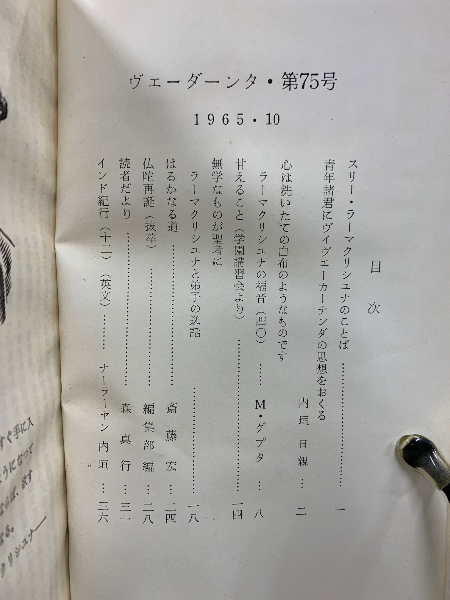 ヴェーダーンタ・第75号
1965・10
目次
スリー・ラーマクリシュナのことば……………一
青年諸君にヴィヴェーカーナンダの思想をおくる
内垣日親…二
心は洗いたての白布のようなものです
ラーマクリシュナの福音(四〇)……M・グプタ…八
甘えること(学園講習会より)……………一四
無学なものが聖者に
ラーマクリシュナと弟子の逸話……………一八
はるかなる道……………斎藤宏…二四
仏陀再誕(抜萃)……………編集部編…二八
読者だより……………森真行…三一
インド紀行(十二)(英文)………ナーラーヤン内垣…三六
すぐ手に入
ようになって
クリシュナ――